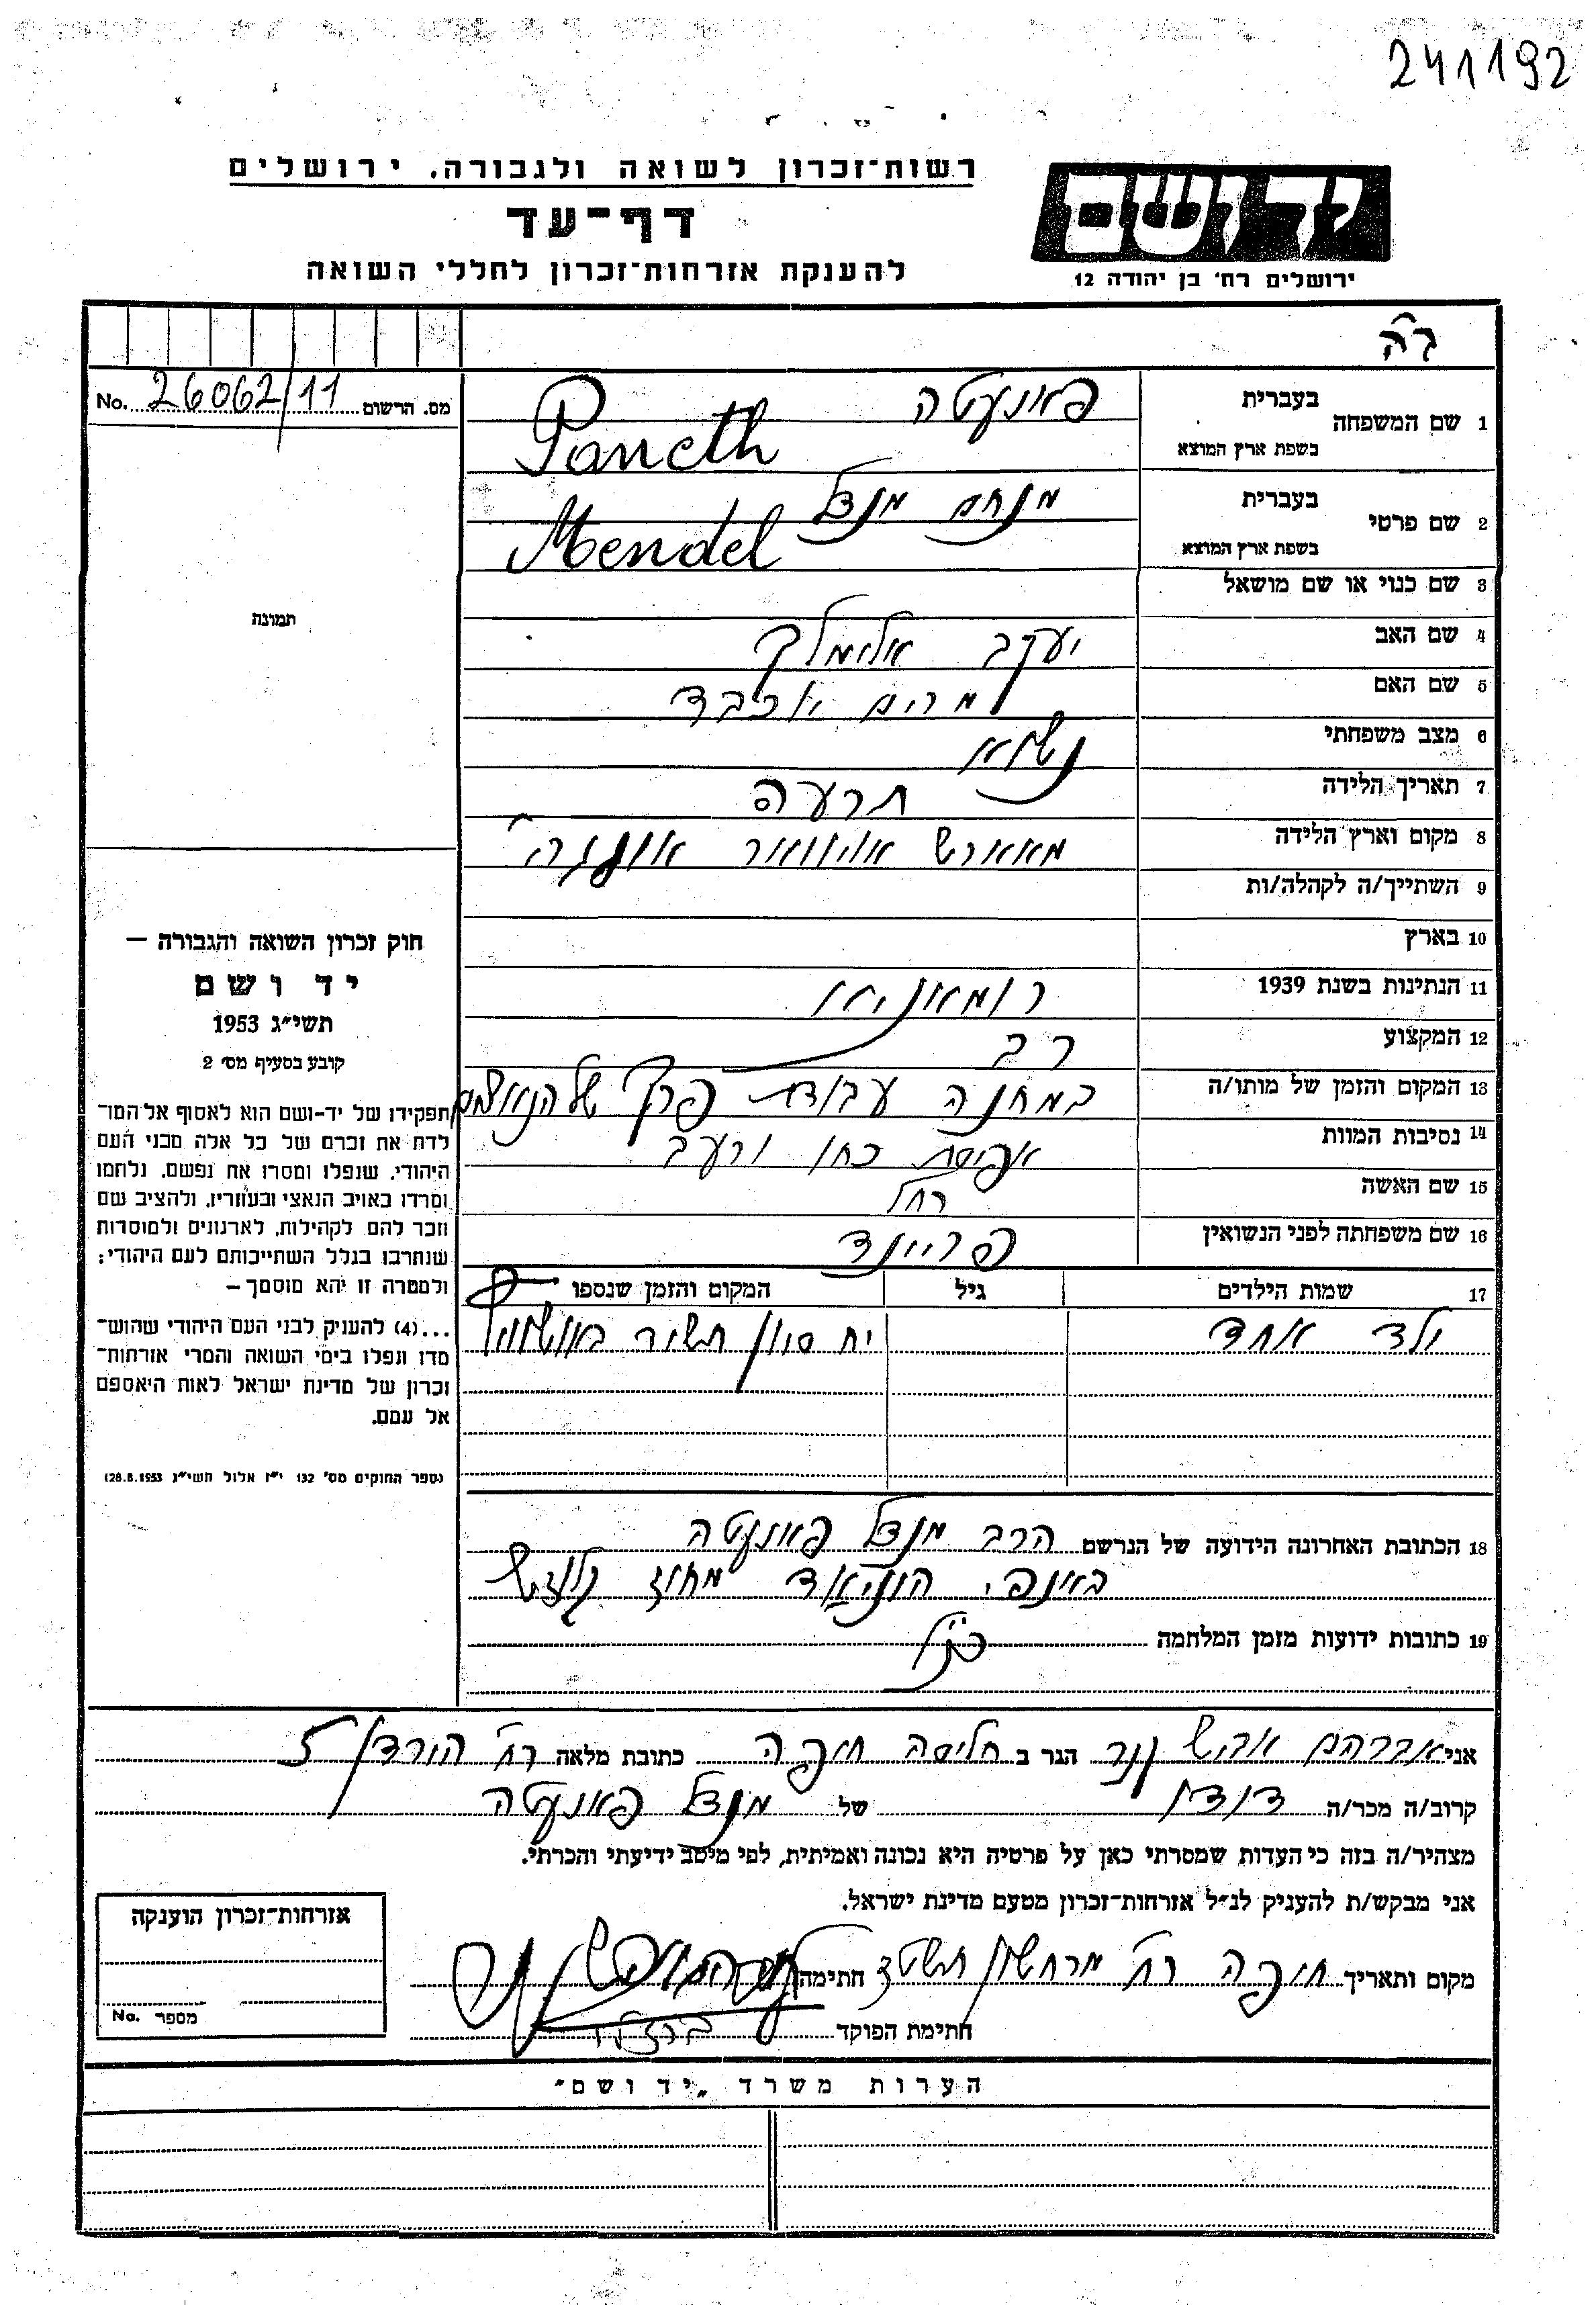 241192
רשות־זכרון לשואה ולגבורה, ירושלים
דף־עד
להענקת אזרחות־זכרון לחללי השואה
יד ושם
ירושלים רח' בן יהודה 12
מס. הרשום 26062/11 No.
1 שם המשפחה
בעברית פאנעטה
בשפת ארץ המוצא Paneth
2 שם פרטי
בעברית מנחם מנדל
בשפת ארץ המוצא Mendel
3 שם כנוי או שם מושאל
4 שם האב יעקב אלימלך
5 שם האם מרים יוכבד
6 מצב משפחתי נשוי
7 תאריך הלידה תרעה
8 מקום וארץ הלידה מאארש אויוואר
9 השתייך/ה לקהלה/ות
10 בארץ
11 הנתינות בשנת 1939 רומאניא
12 המקצוע רב
13 המקום והזמן של מותו/ה במחנה עבודת פרך של הנאצים
14 נסיבות המוות אפיסת כחו ורעב
15 שם האשה רחל
16 שם משפחתה לפני הנשואין פריינד
17 שמות הילדים גיל המקום והזמן שנספו
ילד אחד יח סיון תש״ד באושוויץ
18 הכתובת האחרונה הידועה של הנרשם הרב מנדל פאנעטה
באנפי הוניאד מחוז קלוזש
19 כתובות ידועות מזמן המלחמה כנ״ל
תמונה
חוק זכרון השואה והגבורה —
יד ושם
תשי״ג 1953
קובע בסעיף מס' 2
תפקידו של יד־ושם הוא לאסוף אל המו־
לדת את זכרם של כל אלה מבני העם
היהודי, שנפלו ומסרו את נפשם, נלחמו
ומרדו באויב הנאצי ובעוזריו, ולהציב שם
וזכר להם לקהילות, לארגונים ולמוסדות
שנחרבו בגלל השתייכותם לעם היהודי;
ולמטרה זו יהא מוסמך —
...(4) להעניק לבני העם היהודי שהוש־
מדו ונפלו בימי השואה והמרי אזרחות־
זכרון של מדינת ישראל לאות היאספם
אל עמם.
(ספר החוקים מס' 132 י״ז אלול תשי״ג 28.8.1953)
אני אברהם אבוש הגר ב חליסה חיפה כתובת מלאה רח' הירדן 5
קרוב/ה מכר/ה דודו של מנדל פאנעטה
מצהיר/ה בזה כי העדות שמסרתי כאן על פרטיה היא נכונה ואמיתית, לפי מיטב ידיעתי והכרתי.
אני מבקש/ת להעניק לנ״ל אזרחות־זכרון מטעם מדינת ישראל.
מקום ותאריך חיפה מרחשון חתימה
חתימת הפוקד
אזרחות־זכרון הוענקה
מספר No.
הערות משרד „יד ושם״